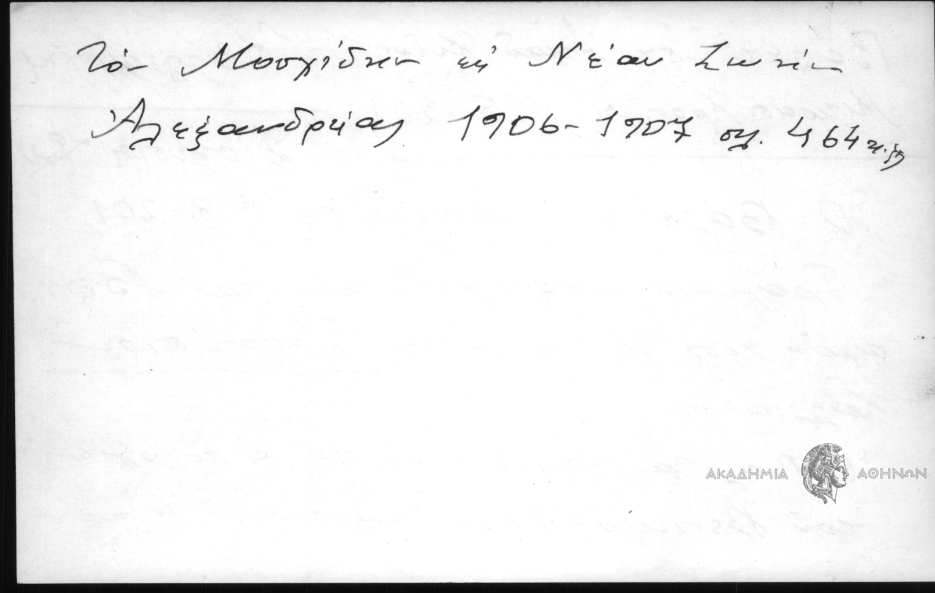 τὸν Μοσχίδην εἰς Νέαν Ζωὴν
Ἀλεξανδρείας 1906-1907 σελ. 464 κ.ἑξ
ΑΚΑΔΗΜΙΑ ΑΘΗΝΩΝ